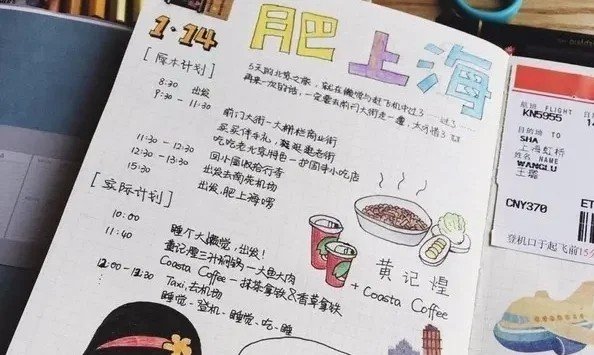 1·14
肥上海
5天的北京之旅，就在懒觉与赶飞机中过了……过了……
再来一次的话，一定要去前门大街走一遭，太可惜了
[原本计划]
8:30 出发
9:30 - 11:30 前门大街-大栅栏商业街
买买伴手礼，逛逛老街
11:30 - 12:30 吃吃老北京特色-护国寺小吃店
12:30 - 13:30 回小窝收拾行李
15:30 出发去南苑机场
出发，肥上海呀
[实际计划]
10:00 睡个大懒觉，出发！
11:40 黄记煌三汁焖锅-大鱼大肉
Coasta Coffee - 抹茶拿铁&香草拿铁
12:00 - 12:30 Taxi，去机场
睡觉-登机-睡觉-吃-睡
黄记煌
+ Coasta Coffee
航班 FLIGHT
KN5955
目的地 TO
SHA
上海虹桥
姓名 NAME
WANGLU
王璐
CNY370
ET
登机口于起飞前15分